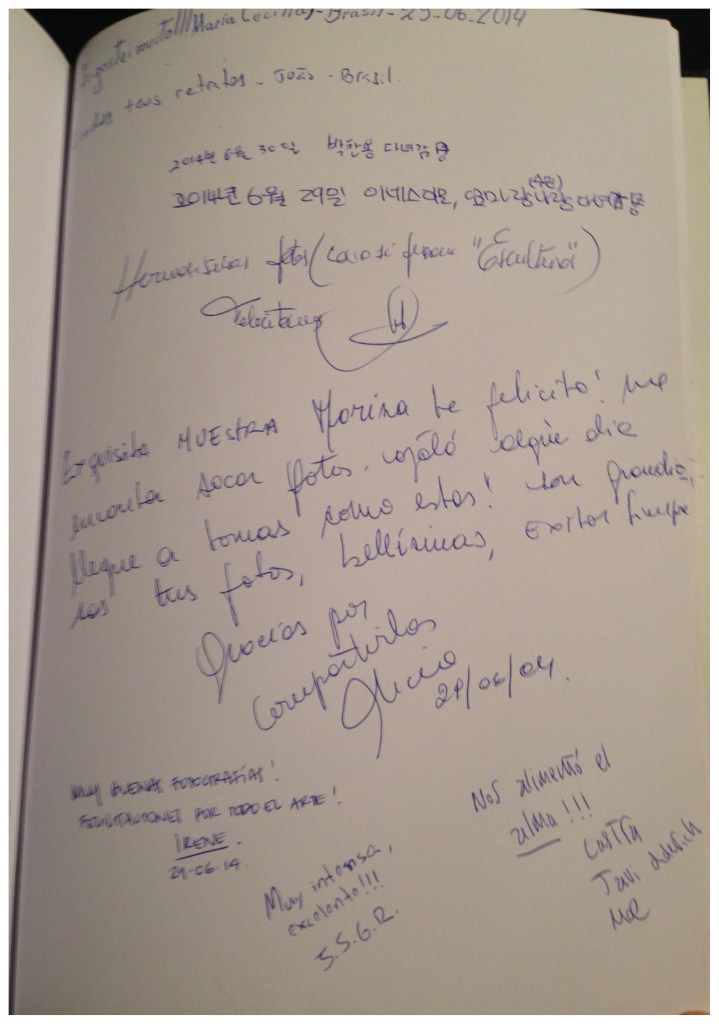 gostei muito!!! Maria Cecilia - Brasil - 29-06-2014
teus retratos - João - Brasil.
2014년 6월 30일 박한용 다녀감
2014년 6월 29일 이네스리오, 엄마랑 나랑 다녀감
Hermosisimas fotos (casi si fueran "Escultura")
Felicitaciones
Exquisita MUESTRA Marina te felicito! me
encanta sacar fotos. ojalá algún dia
llegue a tomas como estas! son grandio
sas tus fotos, bellísimas, exitos siempre
Gracias por
compartirlas
Alicia
29/06/04.
MUY BUENAS FOTOGRAFÍAS!
FELICITACIONES POR TODO EL ARTE!
IRENE.
29-06-14
Muy intensa,
excelente!!!
S.S.G.R.
Nos alimentó el
alma!!!
Castra
Javi